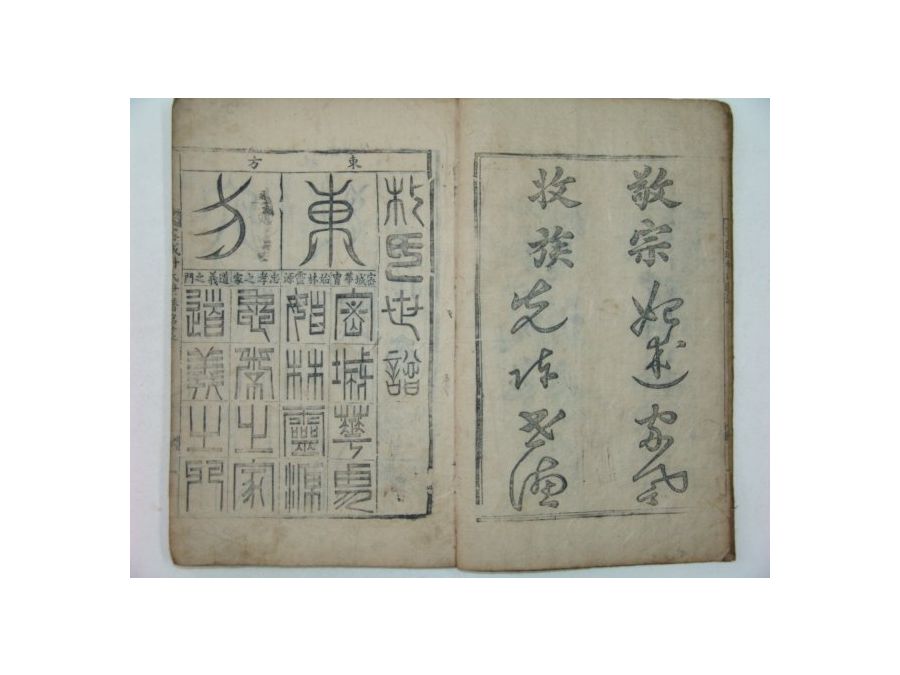 敬宗紹述家風
收族先陳世德
朴氏世譜
東方
東方
密城華胄始林靈源忠孝之家道義之門
密城華胄
始林靈源
忠孝之家
道義之門